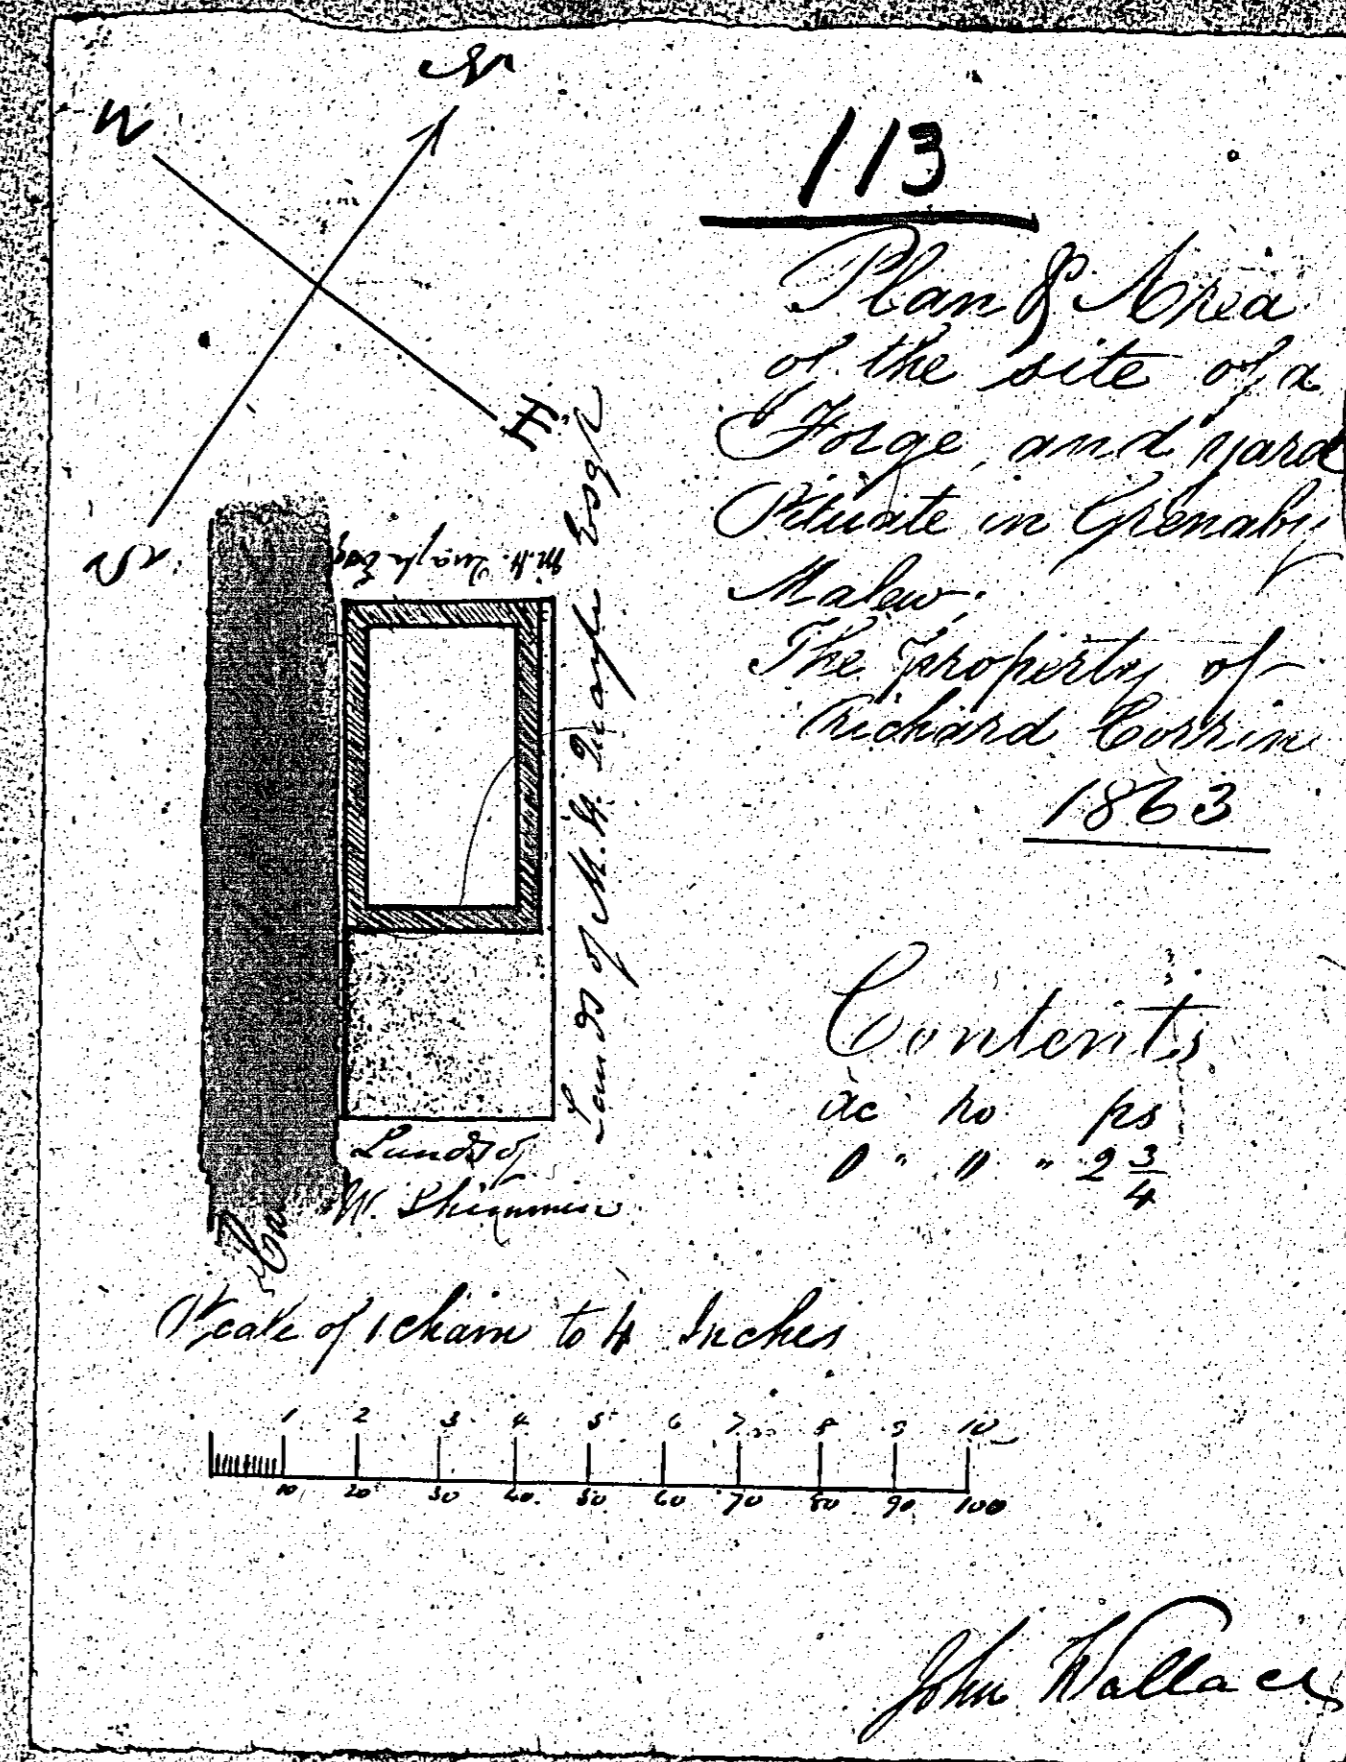 N
W
E
S
113
Plan & Area
of the site of a
Forge, and yard
Situate in Grenaby
Malew;
The property of
Richard Corrin
1863
M. H. Quayle Esq.
Lands of M. H. Quayle Esqr
Lands of
W. Shimmin
Contents
ac ro ps
0 " 0 " 2 3/4
Scale of 1 chain to 4 Inches
1 2 3 4 5 6 7 8 9 10
10 20 30 40 50 60 70 80 90 100
John Wallace